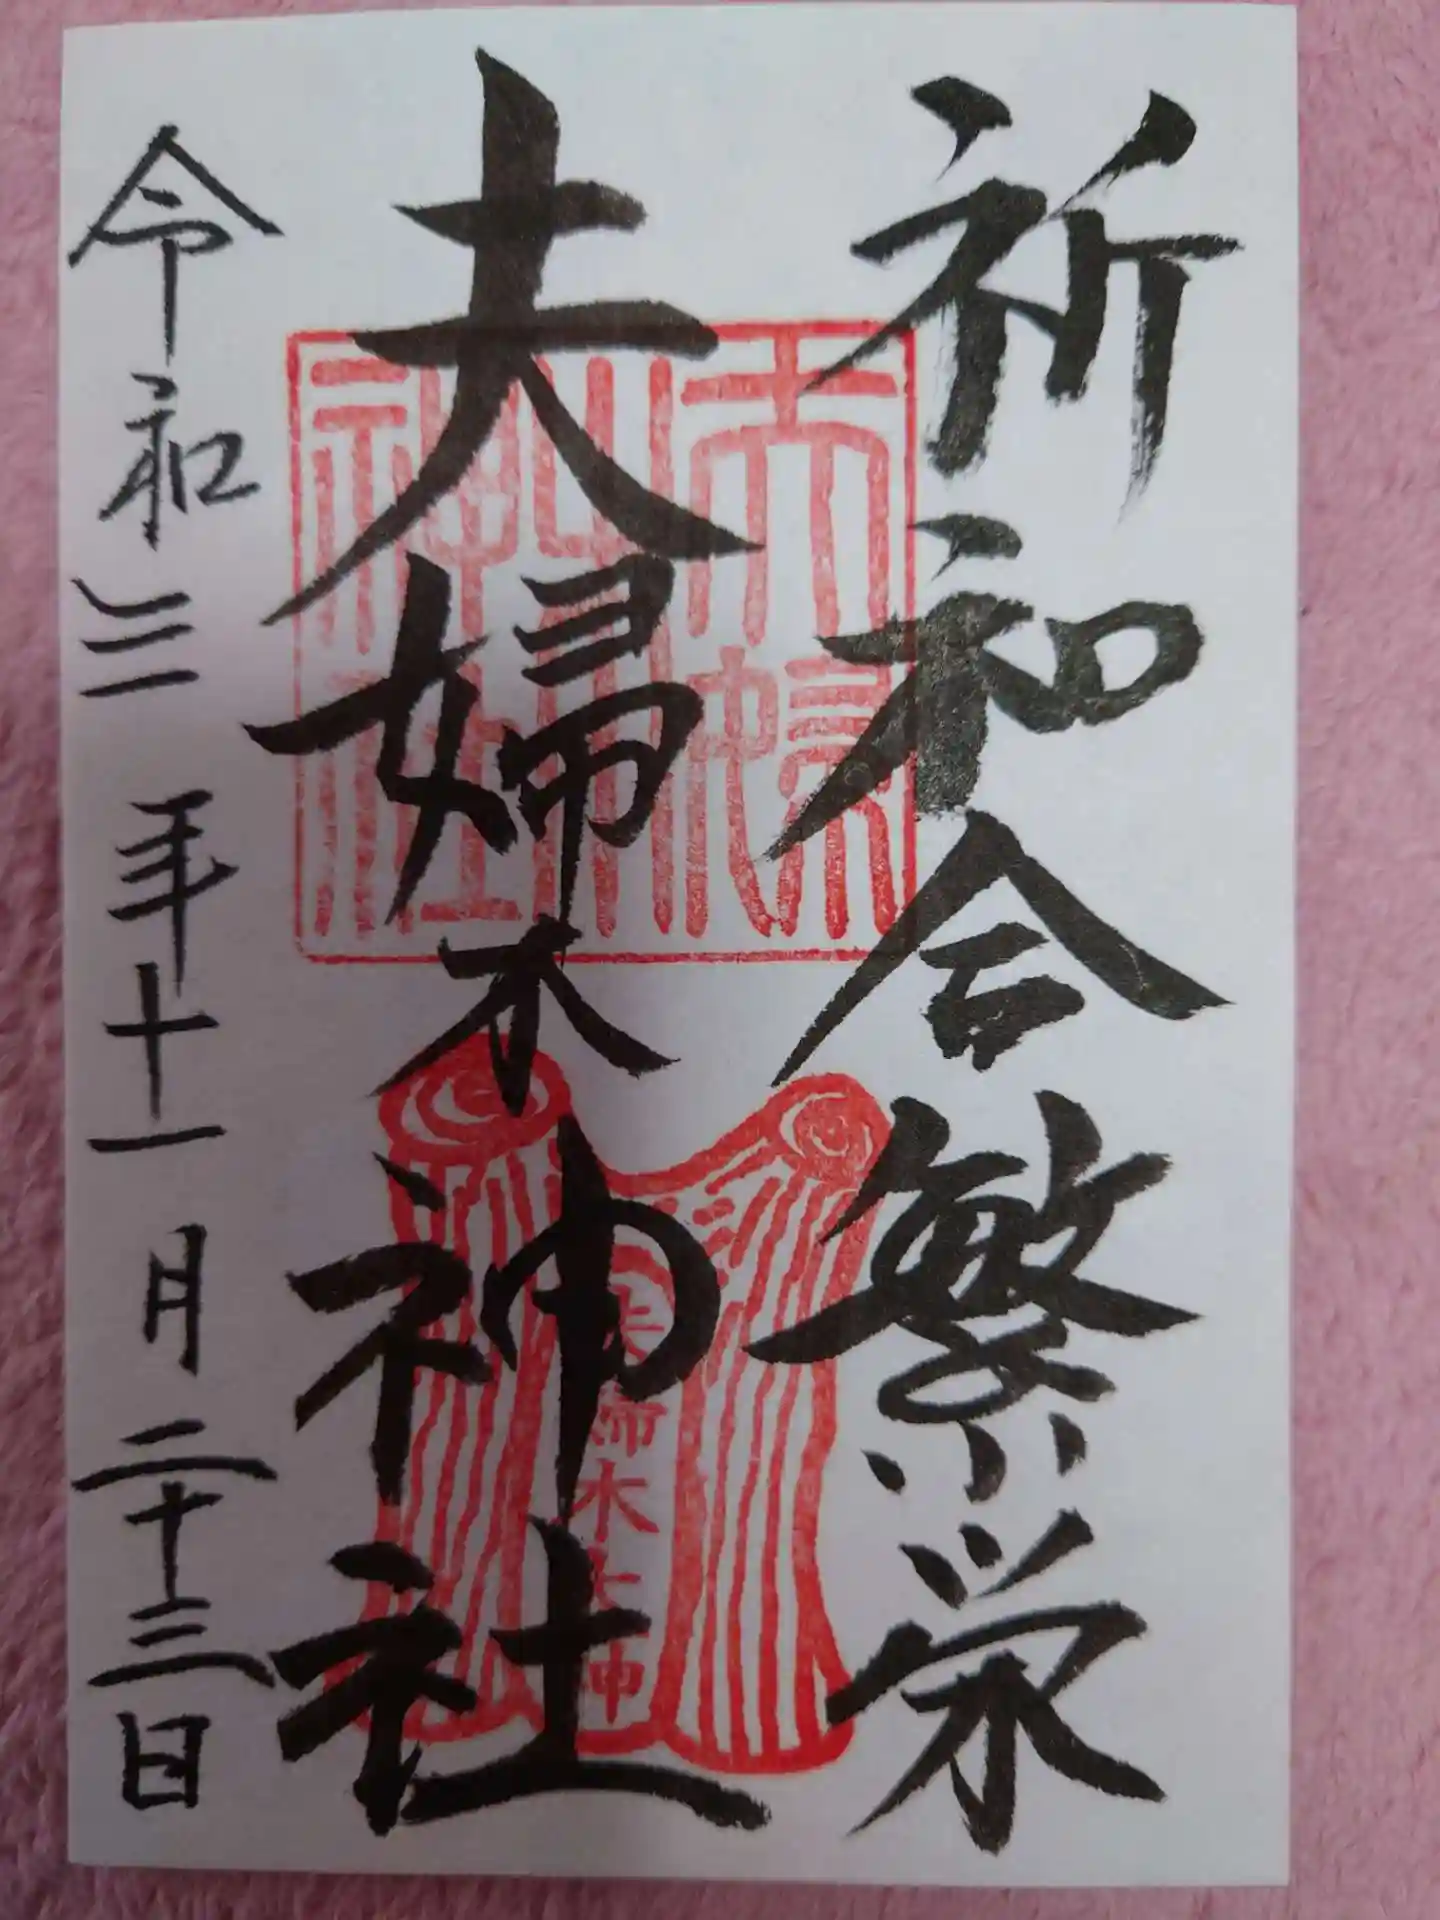 祈和合繁栄
夫婦木神社
令和三年十一月二十三日
夫婦木神社
夫婦木大神